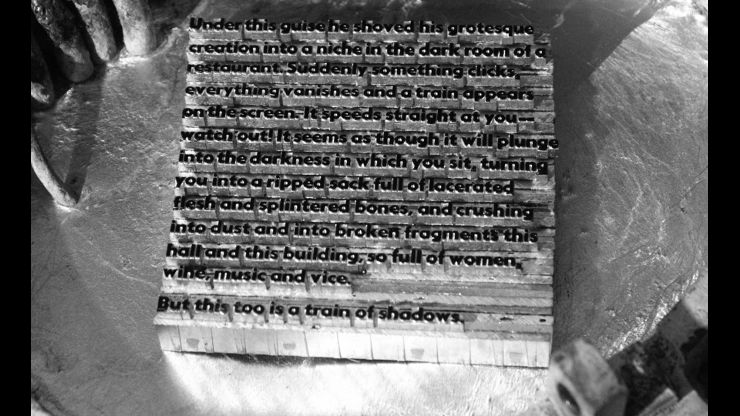 Under this guise he shoved his grotesque
creation into a niche in the dark room of a
restaurant. Suddenly something clicks,
everything vanishes and a train appears
on the screen. It speeds straight at you—
watch out! It seems as though it will plunge
into the darkness in which you sit, turning
you into a ripped sack full of lacerated
flesh and splintered bones, and crushing
into dust and into broken fragments this
hall and this building, so full of women,
wine, music and vice.
But this too is a train of shadows.